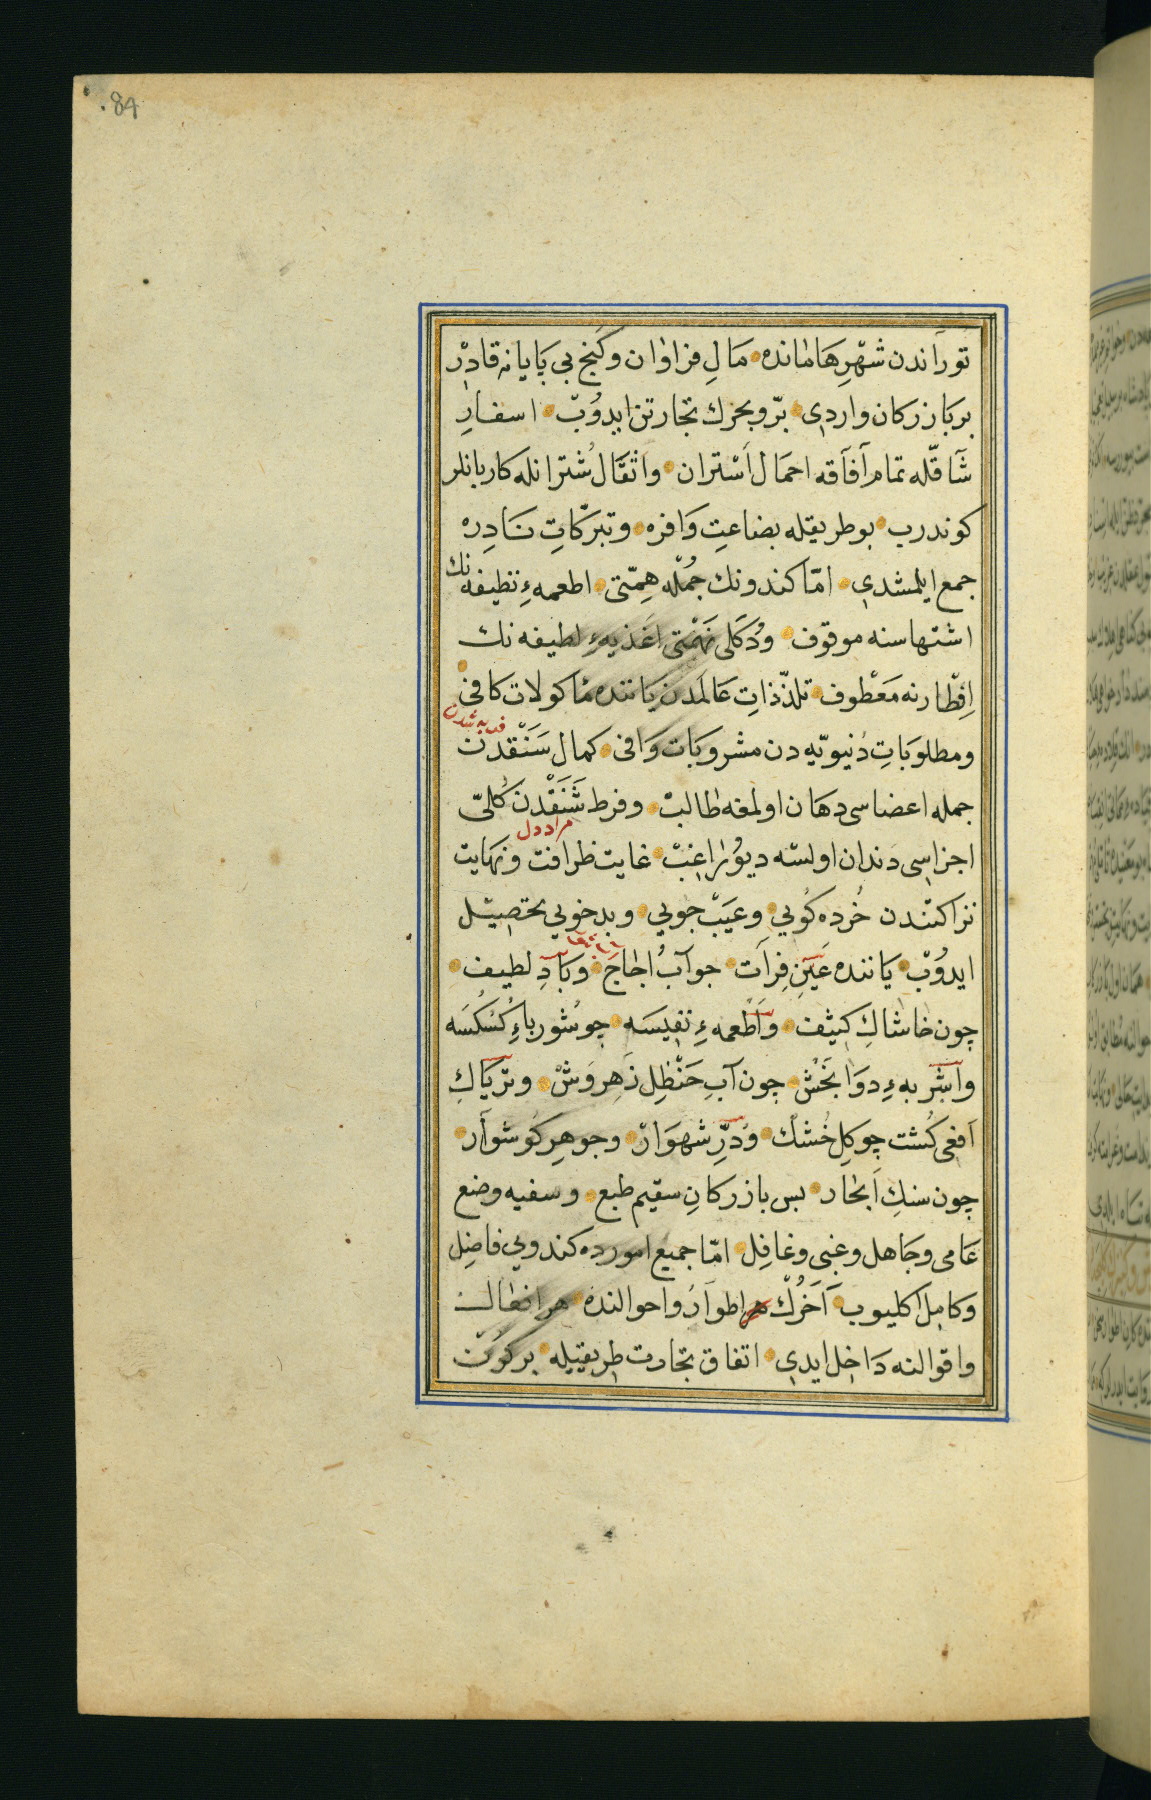 .84
توراندن شهرِ هاماندہ مَالِ فراوان و كَنجِ بی پَايَانه قادِرْ
بر بَازركان واردی برّ و بحرك تجارتن ايدُوبْ اسفارِ
شآقّله تمام آفآقه احمال اَسْتران واَثقَال شُترانله كاربانلر
كوندرب بو طريقله بضاعتِ وَافره وتبرّكاتِ نَادِره
جمع ايلمشدی امّا كندونك جُمْله هِمّتی اطعمهءِ نظيفه نك
اشتهاسنه موقوف ودُكَلی نَهْمَتی اَغذيهءِ لطيفه نك
اِفْطارنه مَعْطوف تلذّذاتِ عَالمدن يَاننده مأكولات كافی
فربه شدن
ومطلوبَاتِ دُنيويّه دن مشروبَات وَافی كمال سَنَقدن
جمله اعضاسی دهان اولمغه طالبْ وفرط شَنَقْدن كُلّی
مراد دل
اجزاسی دندان اولسنه ديُو راغبْ غايت ظرافت ونهايت
نزاكتدن خُرده كُوبی وعَيبْ جوبی وبدخوبی تحصيل
ايدُوبْ يَاننده عَينِ فِرَات جو آبْ اُجَاجْ وبَادِ لطيف
چون خاشاكِ كثيف واَطعمهءِ نفيسَه چو شورباءِ كُسْكُسَه
واَشْربهءِ دوَابَخشْ چون آبِ حَنْظلِ زَهروَشْ وترِيَاكِ
اَفعی كُشت چو كِلِ خُشْك ودُرِّ شهوَارْ وجوهرِ كُوشوَار
چون سنكِ اَبحار بس بازركانِ سقيم طبع وسفيه وضع
عَامی وجَاهل وغبی وغافِل امّا جميع اموردہ كندويی فاضِل
وكامِل اكليوب آخَرُكْ اطوارُ واحوالنده هر
واقوالنه دَاخِل ايدی اتفاق تجارت طريقيله بر كُون